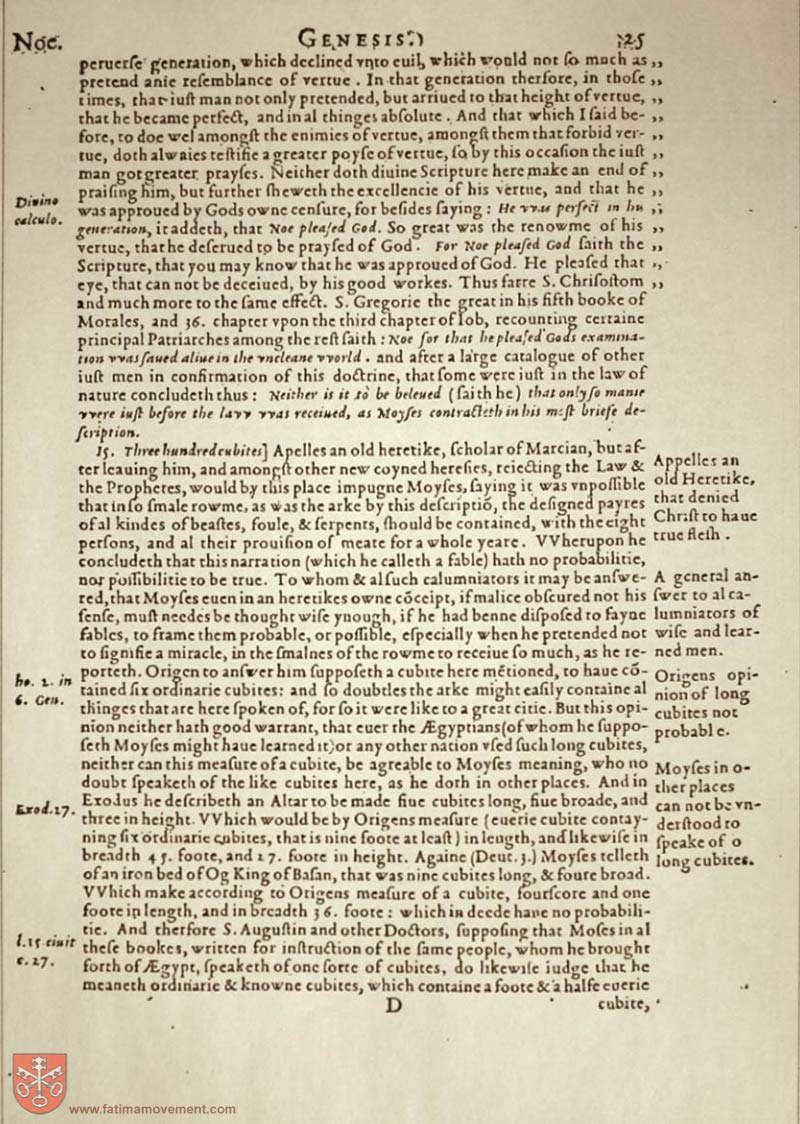 Noe.
GENESIS.
25
peruerſe generation, which declined vnto euil, which would not ſo much as ,,
pretend anie reſemblance of vertue . In that generation therfore, in thoſe ,,
times, that iuſt man not only pretended, but arriued to that height of vertue, ,,
that he became perfect, and in al thinges abſolute . And that which I ſaid be- ,,
fore, to doe wel amongſt the enimies of vertue, amongſt them that forbid ver- ,,
tue, doth alwaies teſtifie a greater poyſe of vertue, ſo by this occaſion the iuſt ,,
man got greater prayſes. Neither doth diuine Scripture here make an end of ,,
praiſing him, but further ſheweth the excellencie of his vertue, and that he ,,
Diuino
calculo.
was approued by Gods owne cenſure, for beſides ſaying : He vvas perfect in his ,,
generation, it addeth, that Noe pleaſed God. So great was the renowme of his ,,
vertue, that he deſerued to be prayſed of God . For Noe pleaſed God ſaith the ,,
Scripture, that you may know that he was approued of God. He pleaſed that ,,
eye, that can not be deceiued, by his good workes. Thus farre S. Chriſoſtom ,,
and much more to the ſame effect. S. Gregorie the great in his fifth booke of
Morales, and 36. chapter vpon the third chapter of Iob, recounting certaine
principal Patriarches among the reſt ſaith : Noe for that he pleaſed Gods examina-
tion vvas ſaued aliue in the vncleane vvorld . and after a large catalogue of other
iuſt men in confirmation of this doctrine, that ſome were iuſt in the law of
nature concludeth thus : Neither is it to be beleued (ſaith he) that only ſo manie
vvere iuſt before the lavv vvas receiued, as Moyſes contracteth in his moſt briefe de-
ſcription.
15. Three hundred cubites] Apelles an old heretike, ſcholar of Marcian, but af-
ter leauing him, and amongſt other new coyned hereſies, reiecting the Law &
the Prophetes, would by this place impugne Moyſes, ſaying it was vnpoſſible
that in ſo ſmale rowme, as was the arke by this deſcriptiō, the deſigned payres
of al kindes of beaſtes, foule, & ſerpents, ſhould be contained, with the eight
perſons, and al their prouiſion of meate for a whole yeare. VVherupon he
concludeth that this narration (which he calleth a fable) hath no probabilitie,
nor poſſibilitie to be true. To whom & al ſuch calumniators it may be anſwe-
red, that Moyſes euen in an heretikes owne cōceipt, if malice obſcured not his
ſenſe, muſt needes be thought wiſe ynough, if he had benne diſpoſed to fayne
fables, to frame them probable, or poſſible, eſpecially when he pretended not
to ſignifie a miracle, in the ſmalnes of the rowme to receiue ſo much, as he re-
porteth. Origen to anſwer him ſuppoſeth a cubite here mētioned, to haue cō-
tained ſix ordinarie cubites: and ſo doubtles the arke might eaſily containe al
thinges that are here ſpoken of, for ſo it were like to a great citie. But this opi-
nion neither hath good warrant, that euer the Ægyptians (of whom he ſuppo-
ſeth Moyſes might haue learned it) or any other nation vſed ſuch long cubites,
neither can this meaſure of a cubite, be agreable to Moyſes meaning, who no
doubt ſpeaketh of the like cubites here, as he doth in other places. And in
Exodus he deſcribeth an Altar to be made fiue cubites long, fiue broade, and
three in height. VVhich would be by Origens meaſure (euerie cubite contay-
ning ſix ordinarie cubites, that is nine foote at leaſt) in length, and likewiſe in
breadth 45. foote, and 27. foote in height. Againe (Deut. 3.) Moyſes telleth
of an iron bed of Og King of Baſan, that was nine cubites long, & foure broad.
VVhich make according to Origens meaſure of a cubite, fourſcore and one
foote in length, and in breadth 36. foote : which in deede haue no probabili-
tie. And therfore S. Auguſtin and other Doctors, ſuppoſing that Moſes in al
theſe bookes, written for inſtruction of the ſame people, whom he brought
forth of Ægypt, ſpeaketh of one ſorte of cubites, do likewiſe iudge that he
meaneth ordinarie & knowne cubites, which containe a foote & a halfe euerie
D
cubite,
ho. 2. in
6. Gen.
Exod. 27.
l. 15 ciuit
c. 27.
Appelles an
old Heretike,
that denied
Chriſt to haue
true fleſh .
A general an-
ſwer to al ca-
lumniators of
wiſe and lear-
ned men.
Origens opi-
nion of long
cubites not
probable.
Moyſes in o-
ther places
can not be vn-
derſtood to
ſpeake of ſo
long cubites.
www.fatimamovement.com